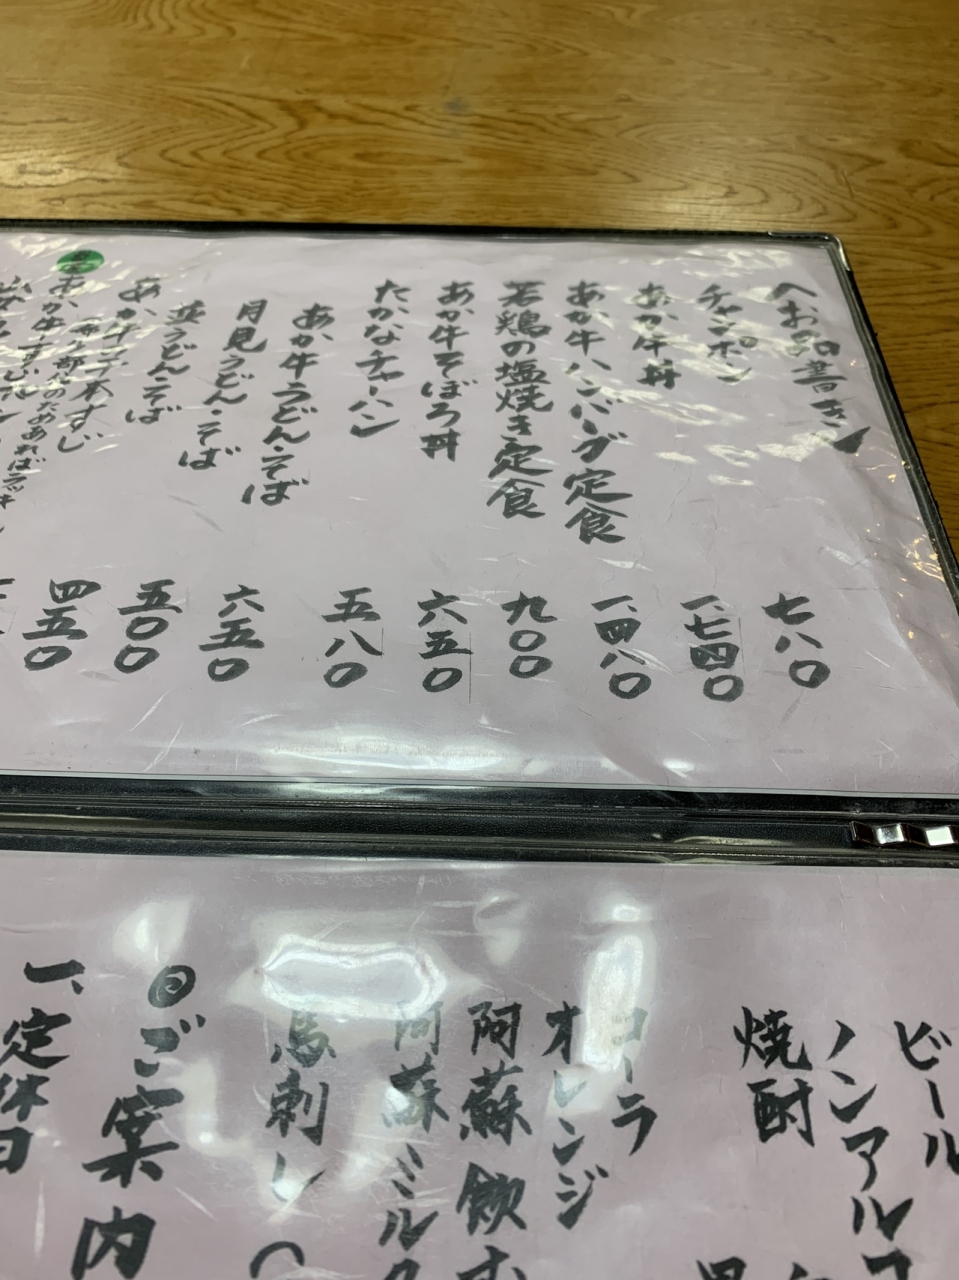 へお品書き
チャンポン
七八〇
あか牛丼
一、七四〇
あか牛ハンバーグ定食
一、四八〇
若鶏の塩焼き定食
九〇〇
あか牛そぼろ丼
六五〇
たかなチャーハン
五八〇
あか牛うどん・そば
六五〇
月見うどん・そば
五〇〇
並うどん・そば
四五〇
あか牛
のためあればラッキー
あか牛
ビール
ノンアルコ
焼酎
コーラ
オレンジ
阿蘇飲む
阿蘇ミルク
馬刺し
◎ご案内
一、定休日